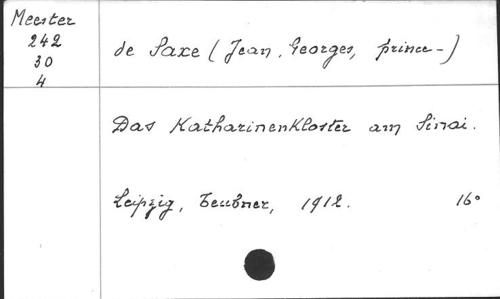 Meester
242
30
4
de Saxe (Jean, Georges, prince-)
Das Katharinenkloster am Sinai.
Leipzig, Teubner, 1912. 16°